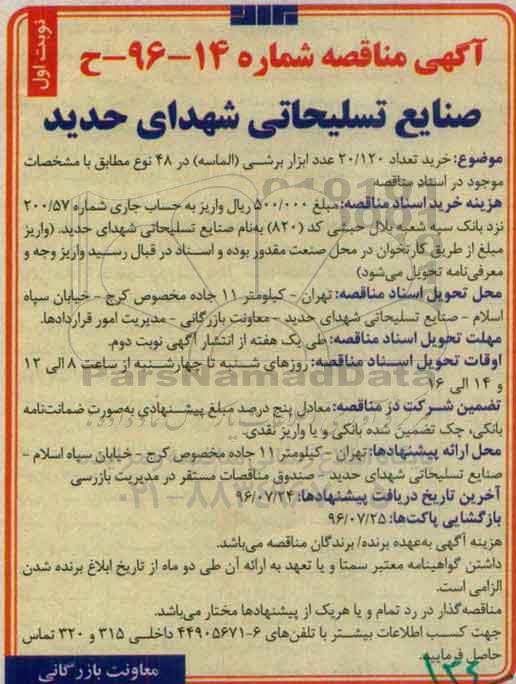 نوبت اول
آگهی مناقصه شماره ۱۴-۹۶-ح
صنایع تسلیحاتی شهدای حدید
موضوع: خرید تعداد ۲۰/۱۲۰ عدد ابزار برشی (الماسه) در ۴۸ نوع مطابق با مشخصات
موجود در اسناد مناقصه
هزینه خرید اسناد مناقصه: مبلغ ۵۰۰/۰۰۰ ریال واریز به حساب جاری شماره ۲۰۰/۵۷
نزد بانک سپه شعبه بلال حبشی کد (۸۲۰) به‌نام صنایع تسلیحاتی شهدای حدید. (واریز
مبلغ از طریق کارتخوان در محل صنعت مقدور بوده و اسناد در قبال رسید واریز وجه و
معرفی‌نامه تحویل می‌شود)
محل تحویل اسناد مناقصه: تهران - کیلومتر ۱۱ جاده مخصوص کرج - خیابان سپاه
اسلام - صنایع تسلیحاتی شهدای حدید - معاونت بازرگانی - مدیریت امور قراردادها.
مهلت تحویل اسناد مناقصه: طی یک هفته از انتشار آگهی نوبت دوم.
اوقات تحویل اسناد مناقصه: روزهای شنبه تا چهارشنبه از ساعت ۸ الی ۱۲
و ۱۴ الی ۱۶
تضمین شرکت در مناقصه: معادل پنج درصد مبلغ پیشنهادی به‌صورت ضمانت‌نامه
بانکی، چک تضمین شده بانکی و یا واریز نقدی.
محل ارائه پیشنهادها: تهران - کیلومتر ۱۱ جاده مخصوص کرج - خیابان سپاه اسلام -
صنایع تسلیحاتی شهدای حدید - صندوق مناقصات مستقر در مدیریت بازرسی
آخرین تاریخ دریافت پیشنهادها: ۹۶/۰۷/۲۴
بازگشایی پاکت‌ها: ۹۶/۰۷/۲۵
هزینه آگهی به‌عهده برنده/ برندگان مناقصه می‌باشد.
داشتن گواهینامه معتبر سمتا و یا تعهد به ارائه آن طی دو ماه از تاریخ ابلاغ برنده شدن
الزامی است.
مناقصه‌گذار در رد تمام و یا هریک از پیشنهادها مختار می‌باشد.
جهت کسب اطلاعات بیشتر با تلفن‌های ۶-۴۴۹۰۵۶۷۱ داخلی ۳۱۵ و ۳۲۰ تماس
حاصل فرمایید.
معاونت بازرگانی
ParsNamadData